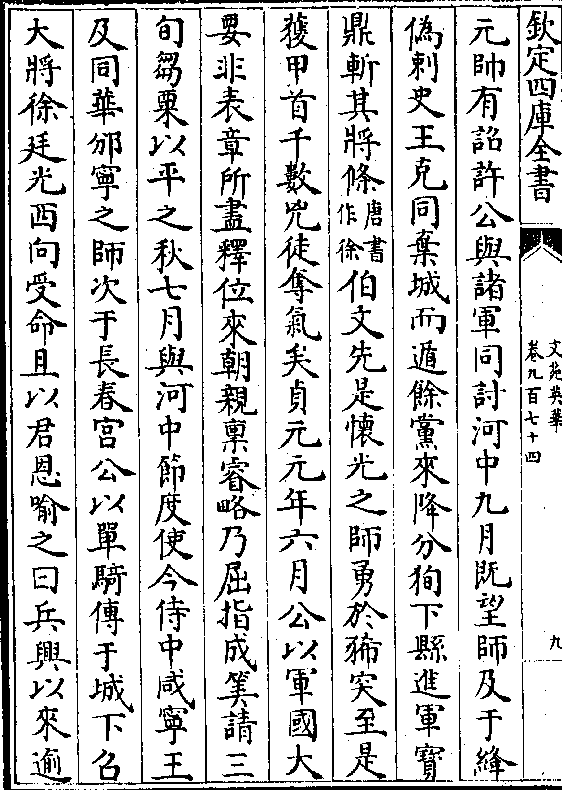 欽定四庫全書
文苑英華
卷九百七十四
九
元帥有詔許公與諸軍同討河中九月既望師及于絳
偽刺史王克同棄城而遁餘黨來降分狥下縣進軍寶
鼎斬其將條唐書作徐伯文先是懷光之師勇於豨突至是
獲甲首千數兇徒奪氣矣貞元元年六月公以軍國大
要非表章所盡釋位來朝親稟睿略乃屈指成筭請三
旬芻粟以平之秋七月與河中節度使今侍中咸寧王
及同華邠寧之師次于長春宫公以單騎傳于城下召
大將徐廷光西向受命且以君恩喻之曰兵興以來逾